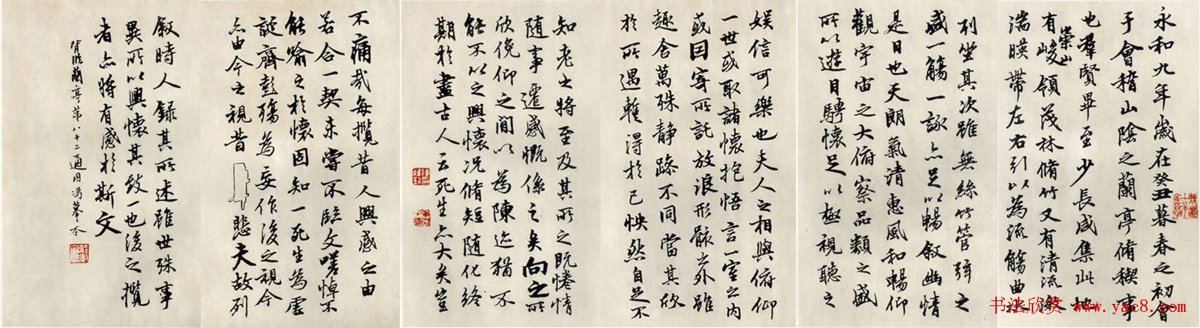 永和九年歲在癸丑暮春之初會
于會稽山陰之蘭亭脩稧事
也羣賢畢至少長咸集此地
有崇山峻領茂林脩竹又有清流激
湍暎帶左右引以為流觴曲水
列坐其次雖無絲竹管弦之
盛一觴一詠亦足以暢叙幽情
是日也天朗氣清惠風和暢仰
觀宇宙之大俯察品類之盛
所以遊目騁懷足以極視聽之
娛信可樂也夫人之相與俯仰
一世或取諸懷抱悟言一室之內
或因寄所託放浪形骸之外雖
趣舍萬殊靜躁不同當其欣
於所遇蹔得於己怏然自足不
知老之將至及其所之既惓情
隨事遷感慨係之矣向之所
欣俛仰之間以為陳迹猶不
能不以之興懷況脩短隨化終
期於盡古人云死生亦大矣豈
不痛哉每攬昔人興感之由
若合一契未嘗不臨文嗟悼不
能喻之於懷固知一死生為虛
誕齊彭殤為妄作後之視今
亦由今之視昔悲夫故列
敘時人錄其所述雖世殊事
異所以興懷其致一也後之攬
者亦將有感於斯文
背臨蘭亭第八十二通
书法欣赏 www.yac8.com